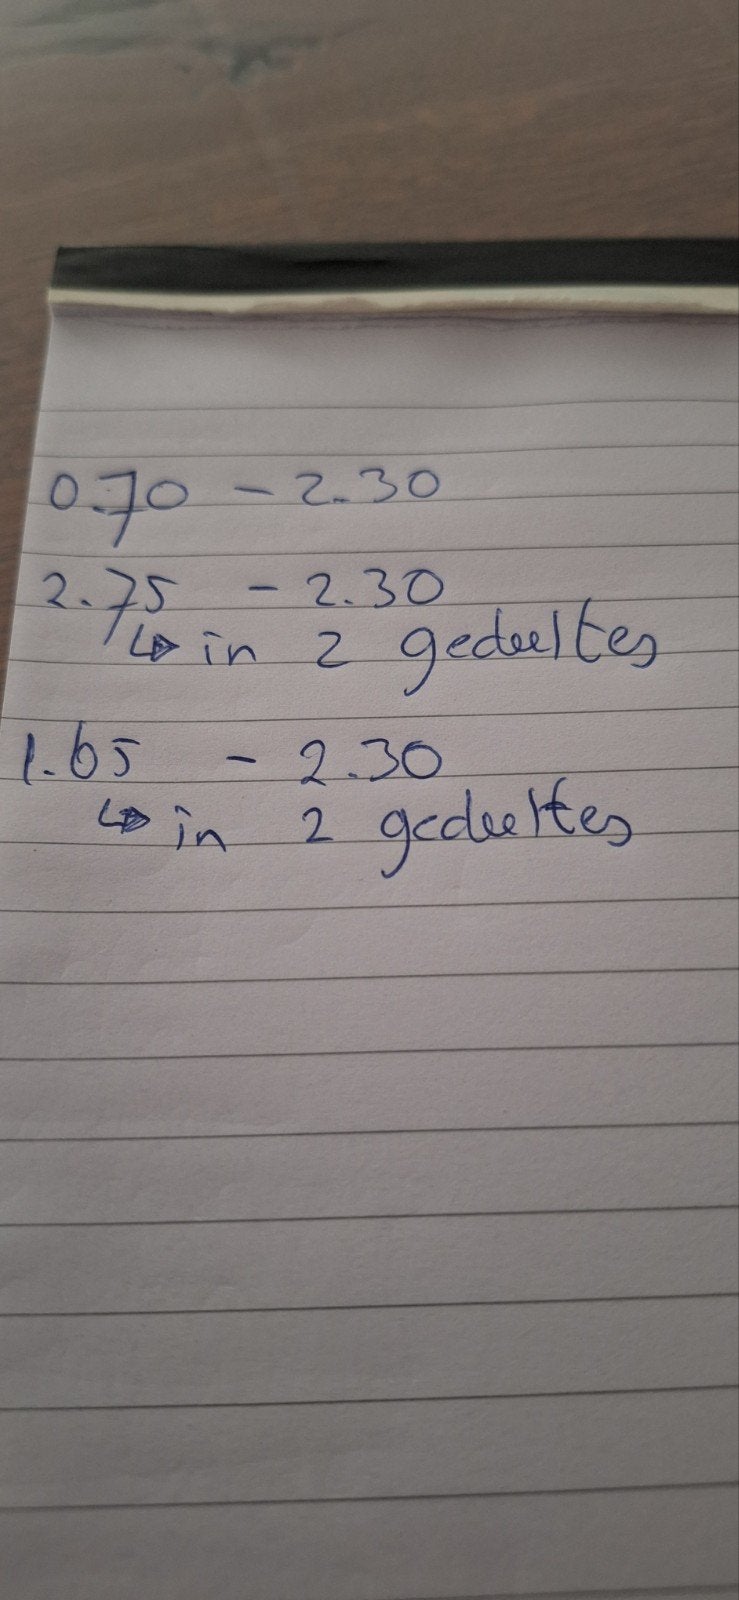 0.70 - 2.30
2.75 - 2.30
↳ in 2 gedeeltes
1.65 - 2.30
↳ in 2 gedeeltes